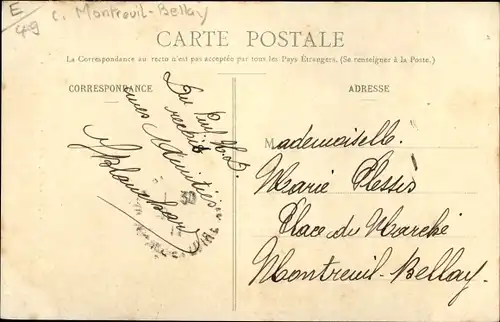 E
49
c. Montreuil-Bellay
CARTE POSTALE
La Correspondance au recto n'est pas acceptée par tous les Pays Étrangers. (Se renseigner à la Poste.)
CORRESPONDANCE
ADRESSE
Du Puy N.D.
recois
mes Amitiés
Blanchard
30
Mademoiselle
Marie Plessis
Place du Marché
Montreuil-Bellay.